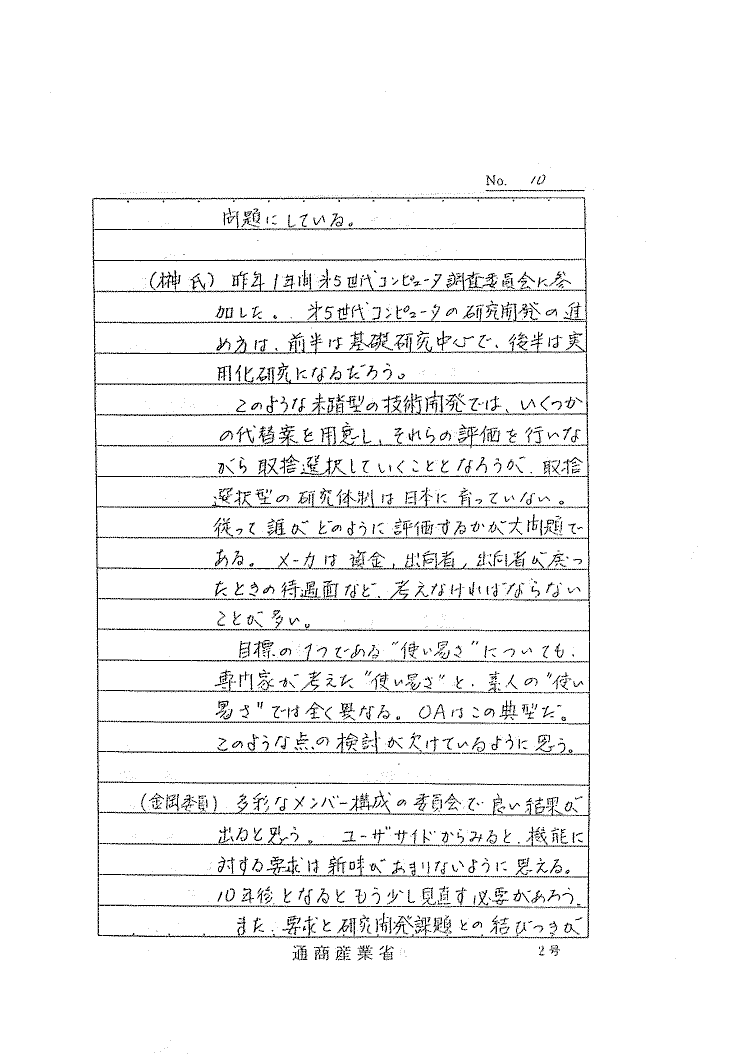 No. 10
問題にしている。
(榊氏) 昨年1年間第5世代コンピュータ調査委員会に参
加した。 第5世代コンピュータの研究開発の進
め方は、前半は基礎研究中心で、後半は実
用化研究になるだろう。
このような未踏型の技術開発では、いくつか
の代替案を用意し、それらの評価を行いな
がら取捨選択していくこととなろうが、取捨
選択型の研究体制は日本に育っていない。
従って誰がどのように評価するかが大問題で
ある。 メーカは資金，出向者，出向者が戻っ
たときの待遇面など、考えなければならない
ことが多い。
目標の1つである“使い易さ”についても、
専門家が考えた“使い易さ”と、素人の“使い
易さ”では全く異なる。OAはこの典型だ。
このような点の検討が欠けているように思う。
(金岡委員) 多彩なメンバー構成の委員会で良い結果が
出ると思う。 ユーザサイドからみると、機能に
対する要求は新味があまりないように思える。
10年後となるともう少し見直す必要があろう。
また、要求と研究開発課題との結びつきが
通商産業省
2号